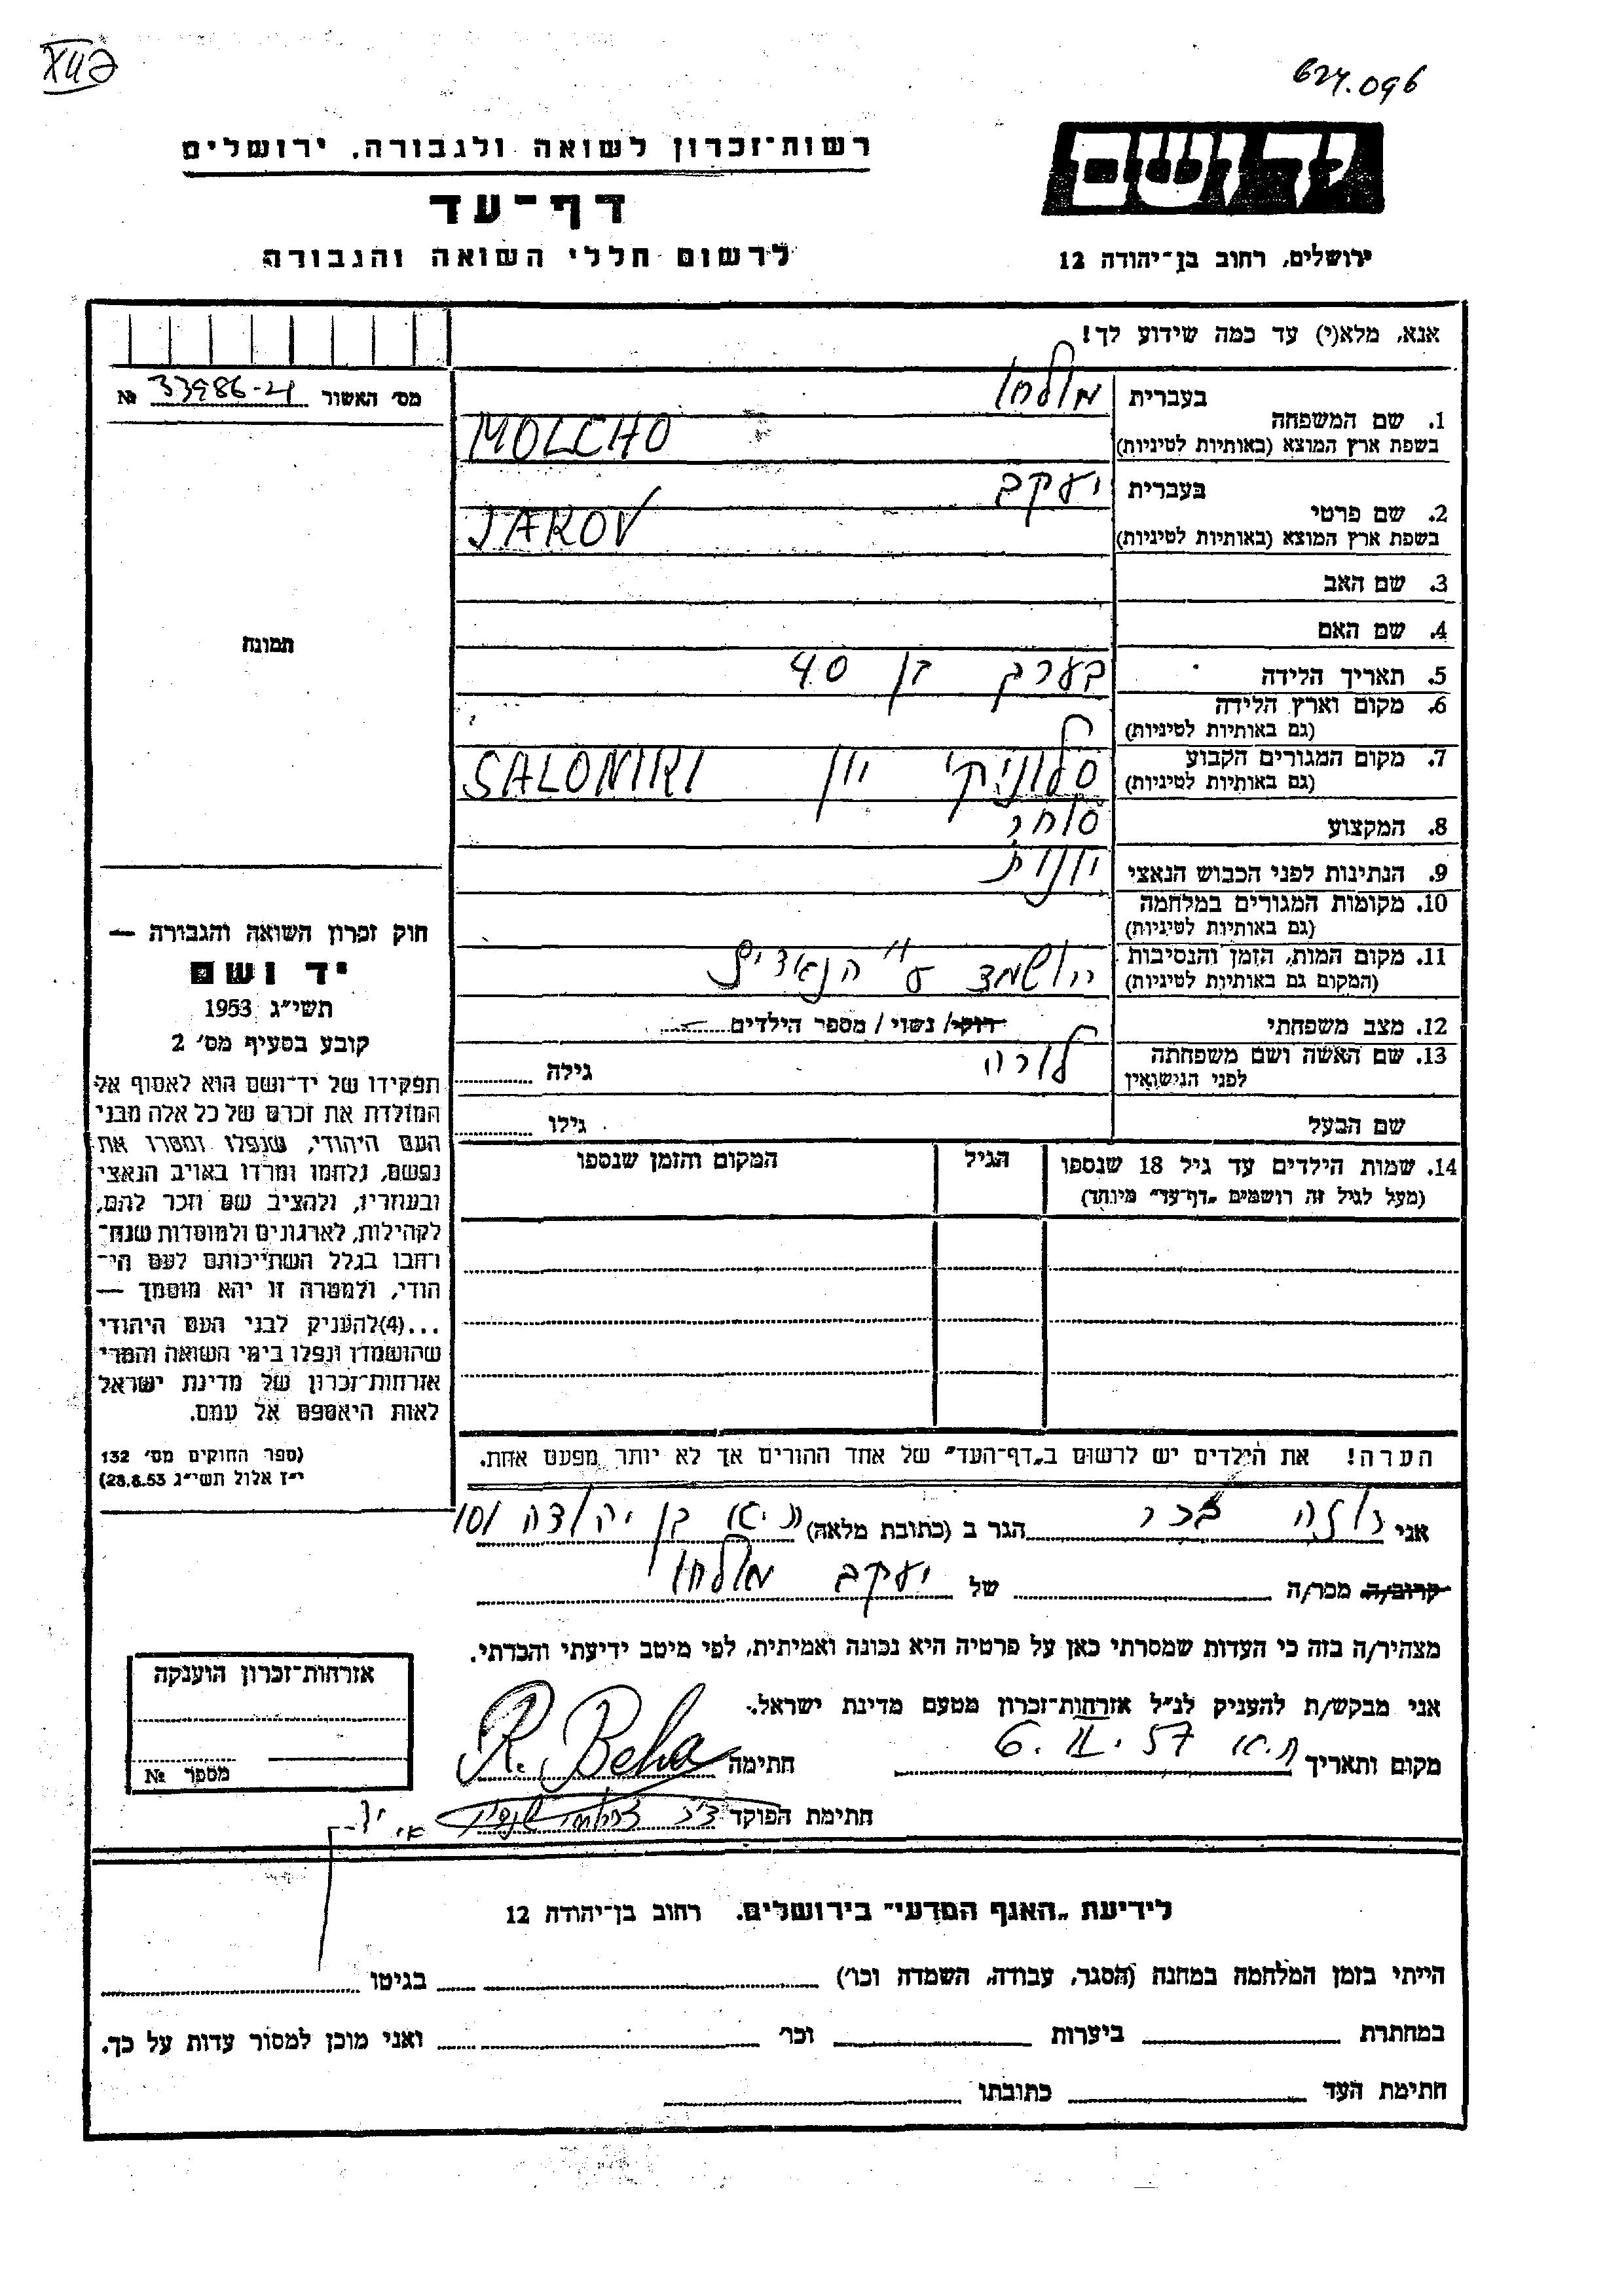 624.096
רשות־זכרון לשואה ולגבורה, ירושלים
יד ושם
דף־עד
לרשום חללי השואה והגבורה
ירושלים, רחוב בן־יהודה 12
אנא, מלא(י) עד כמה שידוע לך!
מס׳ האשור 33986-21 №
בעברית מולחו
1. שם המשפחה
בשפת ארץ המוצא (באותיות לטיניות) MOLCHO
בעברית יעקב
2. שם פרטי
בשפת ארץ המוצא (באותיות לטיניות) JAKOV
3. שם האב
4. שם האם
תמונה
5. תאריך הלידה בערך בן 40
6. מקום וארץ הלידה
(גם באותיות לטיניות)
7. מקום המגורים הקבוע
(גם באותיות לטיניות) סלוניקי יון SALONIKI
8. המקצוע סוחר
9. הנתינות לפני הכבוש הנאצי יונית
10. מקומות המגורים במלחמה
(גם באותיות לטיניות)
11. מקום המות, הזמן והנסיבות
(המקום גם באותיות לטיניות) הושמד ע"י הנאצים
12. מצב משפחתי רווק/ נשוי / מספר הילדים
13. שם האשה ושם משפחתה
לפני הנישואין לורה גילה
שם הבעל גילו
14. שמות הילדים עד גיל 18 שנספו
(מעל לגיל זה רושמים „דף־עד״ מיוחד)
הגיל
המקום והזמן שנספו
הערה! את הילדים יש לרשום ב„דף־העד״ של אחד ההורים אך לא יותר מפעם אחת.
חוק זכרון השואה והגבורה —
יד ושם
תשי״ג 1953
קובע בסעיף מס׳ 2
תפקידו של יד־ושם הוא לאסוף אל
המולדת את זכרם של כל אלה מבני
העם היהודי, שנפלו ומסרו את
נפשם, נלחמו ומרדו באויב הנאצי
ובעוזריו, ולהציב שם וזכר להם,
לקהילות, לארגונים ולמוסדות שנח־
רחבו בגלל השתייכותם לעם הי־
הודי, ולמטרה זו יהא מוסמך —
...(4)להעניק לבני העם היהודי
שהושמדו ונפלו בימי השואה והמרי
אזרחות־זכרון של מדינת ישראל
לאות היאספם אל עמם.
(ספר החוקים מס׳ 132
י״ז אלול תשי״ג 28.8.53)
אני רוזה בכר הגר ב (כתובת מלאה) ת"א בן יהודה 101
קרוב/ה מכר/ה של יעקב מולחו
מצהיר/ה בזה כי העדות שמסרתי כאן על פרטיה היא נכונה ואמיתית, לפי מיטב ידיעתי והכרתי.
אני מבקש/ת להעניק לנ״ל אזרחות־זכרון מטעם מדינת ישראל.
מקום ותאריך ת"א 6.II.57 חתימה R. Beha
חתימת הפוקד
אזרחות־זכרון הוענקה
מספר №
לידיעת „האגף המדעי״ בירושלים, רחוב בן־יהודה 12
הייתי בזמן המלחמה במחנה (הסגר, עבודה, השמדה וכו׳) בגיטו
במחתרת ביערות וכו׳ ואני מוכן למסור עדות על כך.
חתימת העד כתובתו